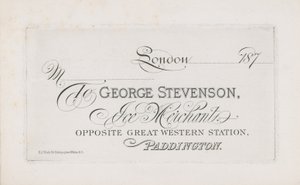 London 187
M
To GEORGE STEVENSON,
Ice Merchant,
OPPOSITE GREAT WESTERN STATION,
PADDINGTON.